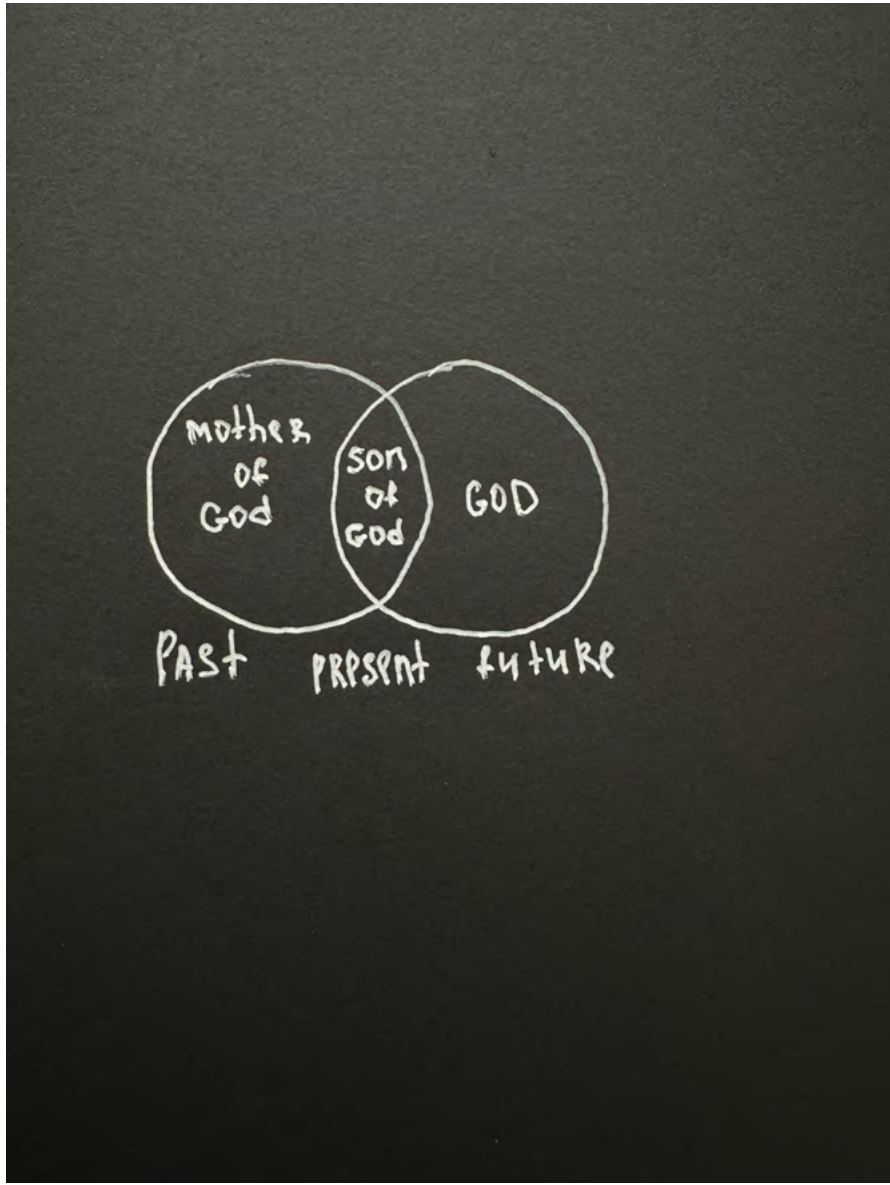 mother
of
God
son
of
God
GOD
PAST
PRESENT
future